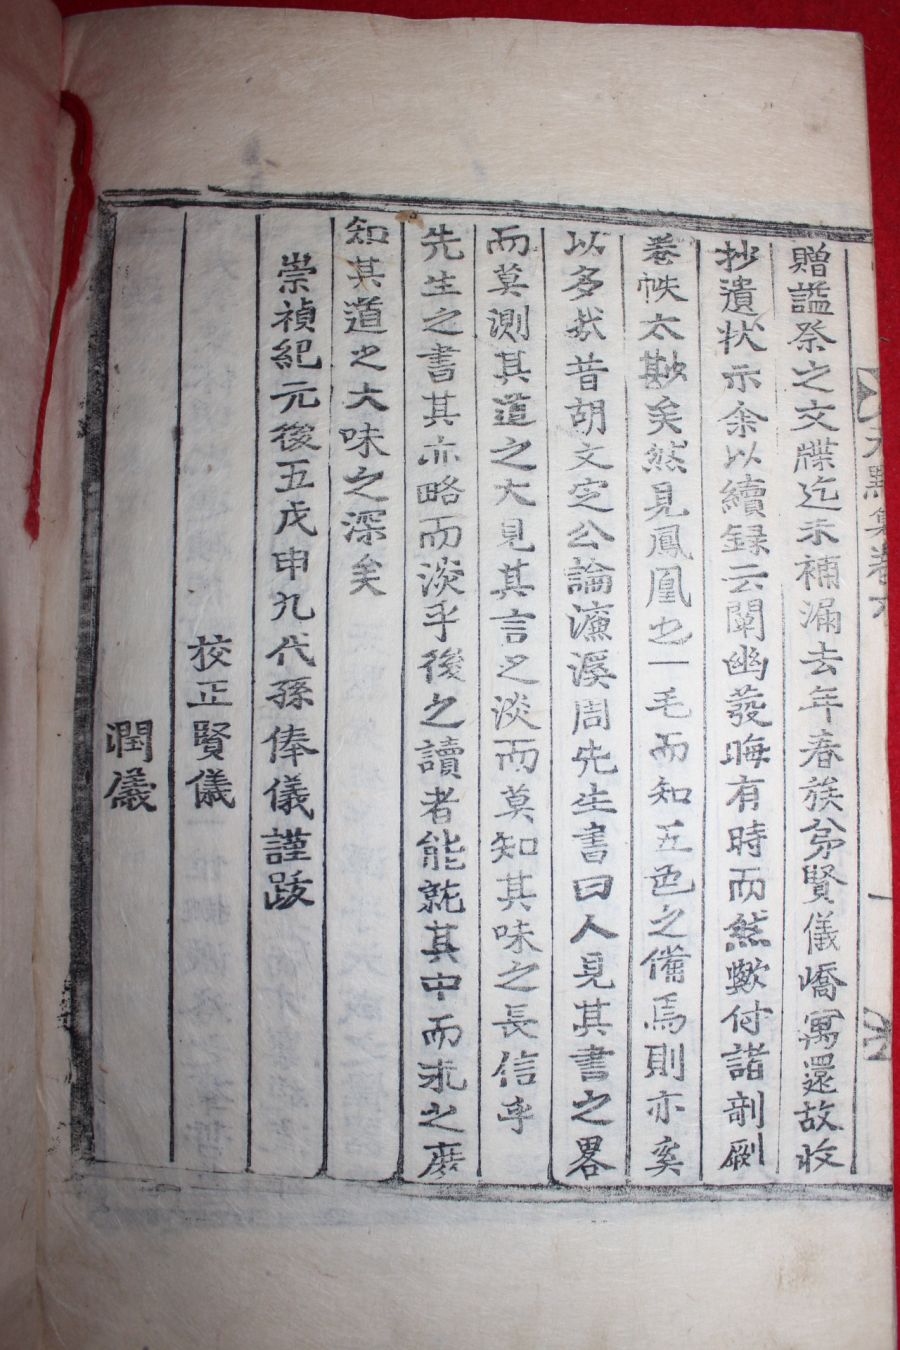 贈諡祭之文牒迄未補漏去年春族弟賢儀嶠寓還故收
抄遺状示余以續録云闡幽發晦有時而然歟付諸剞劂
卷帙太欺矣然見鳳凰之一毛而知五色之備焉則亦奚
以多哉昔胡文定公論濂溪周先生書曰人見其書之畧
而莫測其道之大見其言之淡而莫知其味之長信乎
先生之書其亦略而淡乎後之讀者能就其中而求之庶
知其道之大味之深矣
崇禎紀元後五戊申九代孫俸儀謹跋
校正賢儀
潤儀
點集卷